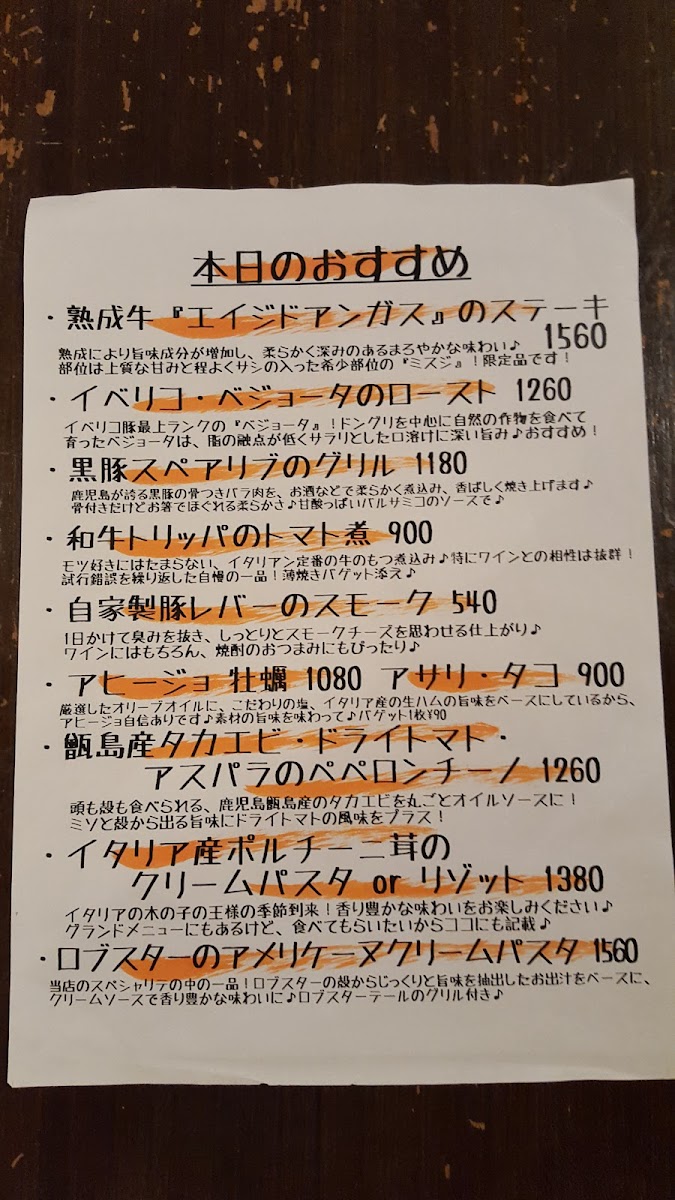 本日のおすすめ
・熟成牛『エイジドアンガス』のステーキ
1560
熟成により旨味成分が増加し、柔らかく深みのあるまろやかな味わい♪
部位は上質な甘みと程よくサシの入った希少部位の『ミスジ』！限定品です！
・イベリコ・ベジョータのロースト 1260
イベリコ豚最上ランクの『ベジョータ』！ドングリを中心に自然の作物を食べて
育ったベジョータは、脂の融点が低くサラリとした口溶けに深い旨み♪おすすめ！
・黒豚スペアリブのグリル 1180
鹿児島が誇る黒豚の骨つきバラ肉を、お酒などで柔らかく煮込み、香ばしく焼き上げます♪
骨付きだけどお箸でほぐれる柔らかさ♪甘酸っぱいバルサミコのソースで♪
・和牛トリッパのトマト煮 900
モツ好きにはたまらない、イタリアン定番の牛のもつ煮込み♪特にワインとの相性は抜群！
試行錯誤を繰り返した自慢の一品！薄焼きバゲット添え♪
・自家製豚レバーのスモーク 540
1日かけて臭みを抜き、しっとりとスモークチーズを思わせる仕上がり♪
ワインにはもちろん、焼酎のおつまみにもぴったり♪
・アヒージョ 牡蠣 1080 アサリ・タコ 900
厳選したオリーブオイルに、こだわりの塩、イタリア産の生ハムの旨味をベースにしているから、
アヒージョ自信ありです♪素材の旨味を味わって♪バゲット1枚¥90
・甑島産タカエビ・ドライトマト・
アスパラのペペロンチーノ 1260
頭も殻も食べられる、鹿児島甑島産のタカエビを丸ごとオイルソースに！
ミソと殻から出る旨味にドライトマトの風味をプラス！
・イタリア産ポルチーニ茸の
クリームパスタ or リゾット 1380
イタリアの木の子の王様の季節到来！香り豊かな味わいをお楽しみください♪
グランドメニューにもあるけど、食べてもらいたいからココにも記載♪
・ロブスターのアメリケーヌクリームパスタ 1560
当店のスペシャリテの中の一品！ロブスターの殻からじっくりと旨味を抽出したお出汁をベースに、
クリームソースで香り豊かな味わいに♪ロブスターテールのグリル付き♪